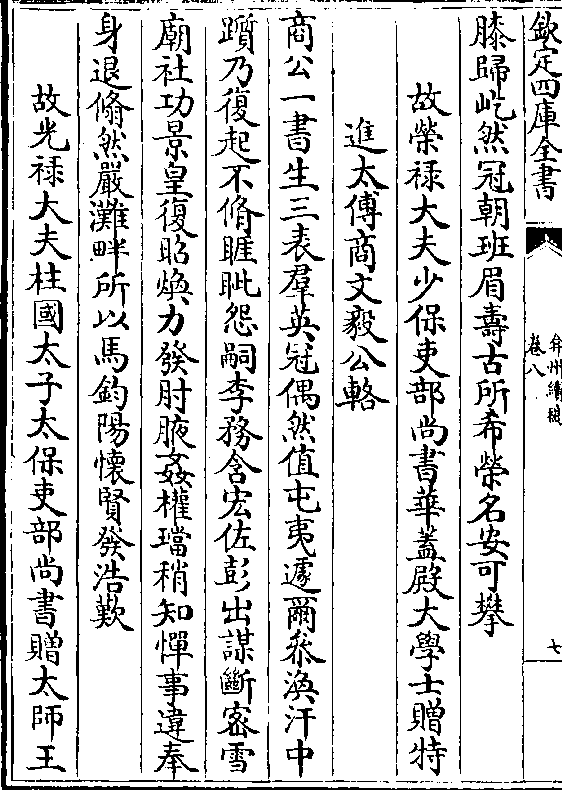 欽定四庫全書
弇州續稿
卷八
七
膝歸屹然冠朝班眉壽古所希榮名安可攀
故榮禄大夫少保吏部尚書華蓋殿大學士贈特
進太傅商文毅公輅
商公一書生三表羣英冠偶然值屯夷遽爾叅渙汗中
躓乃復起不脩睚眦怨嗣李務含宏佐彭出謀斷密雪
廟社功景皇復昭煥力發肘腋姦權璫稍知憚事違奉
身退翛然嚴灘畔所以馬鈞陽懷賢發浩歎
故光禄大夫柱國太子太保吏部尚書贈太師王